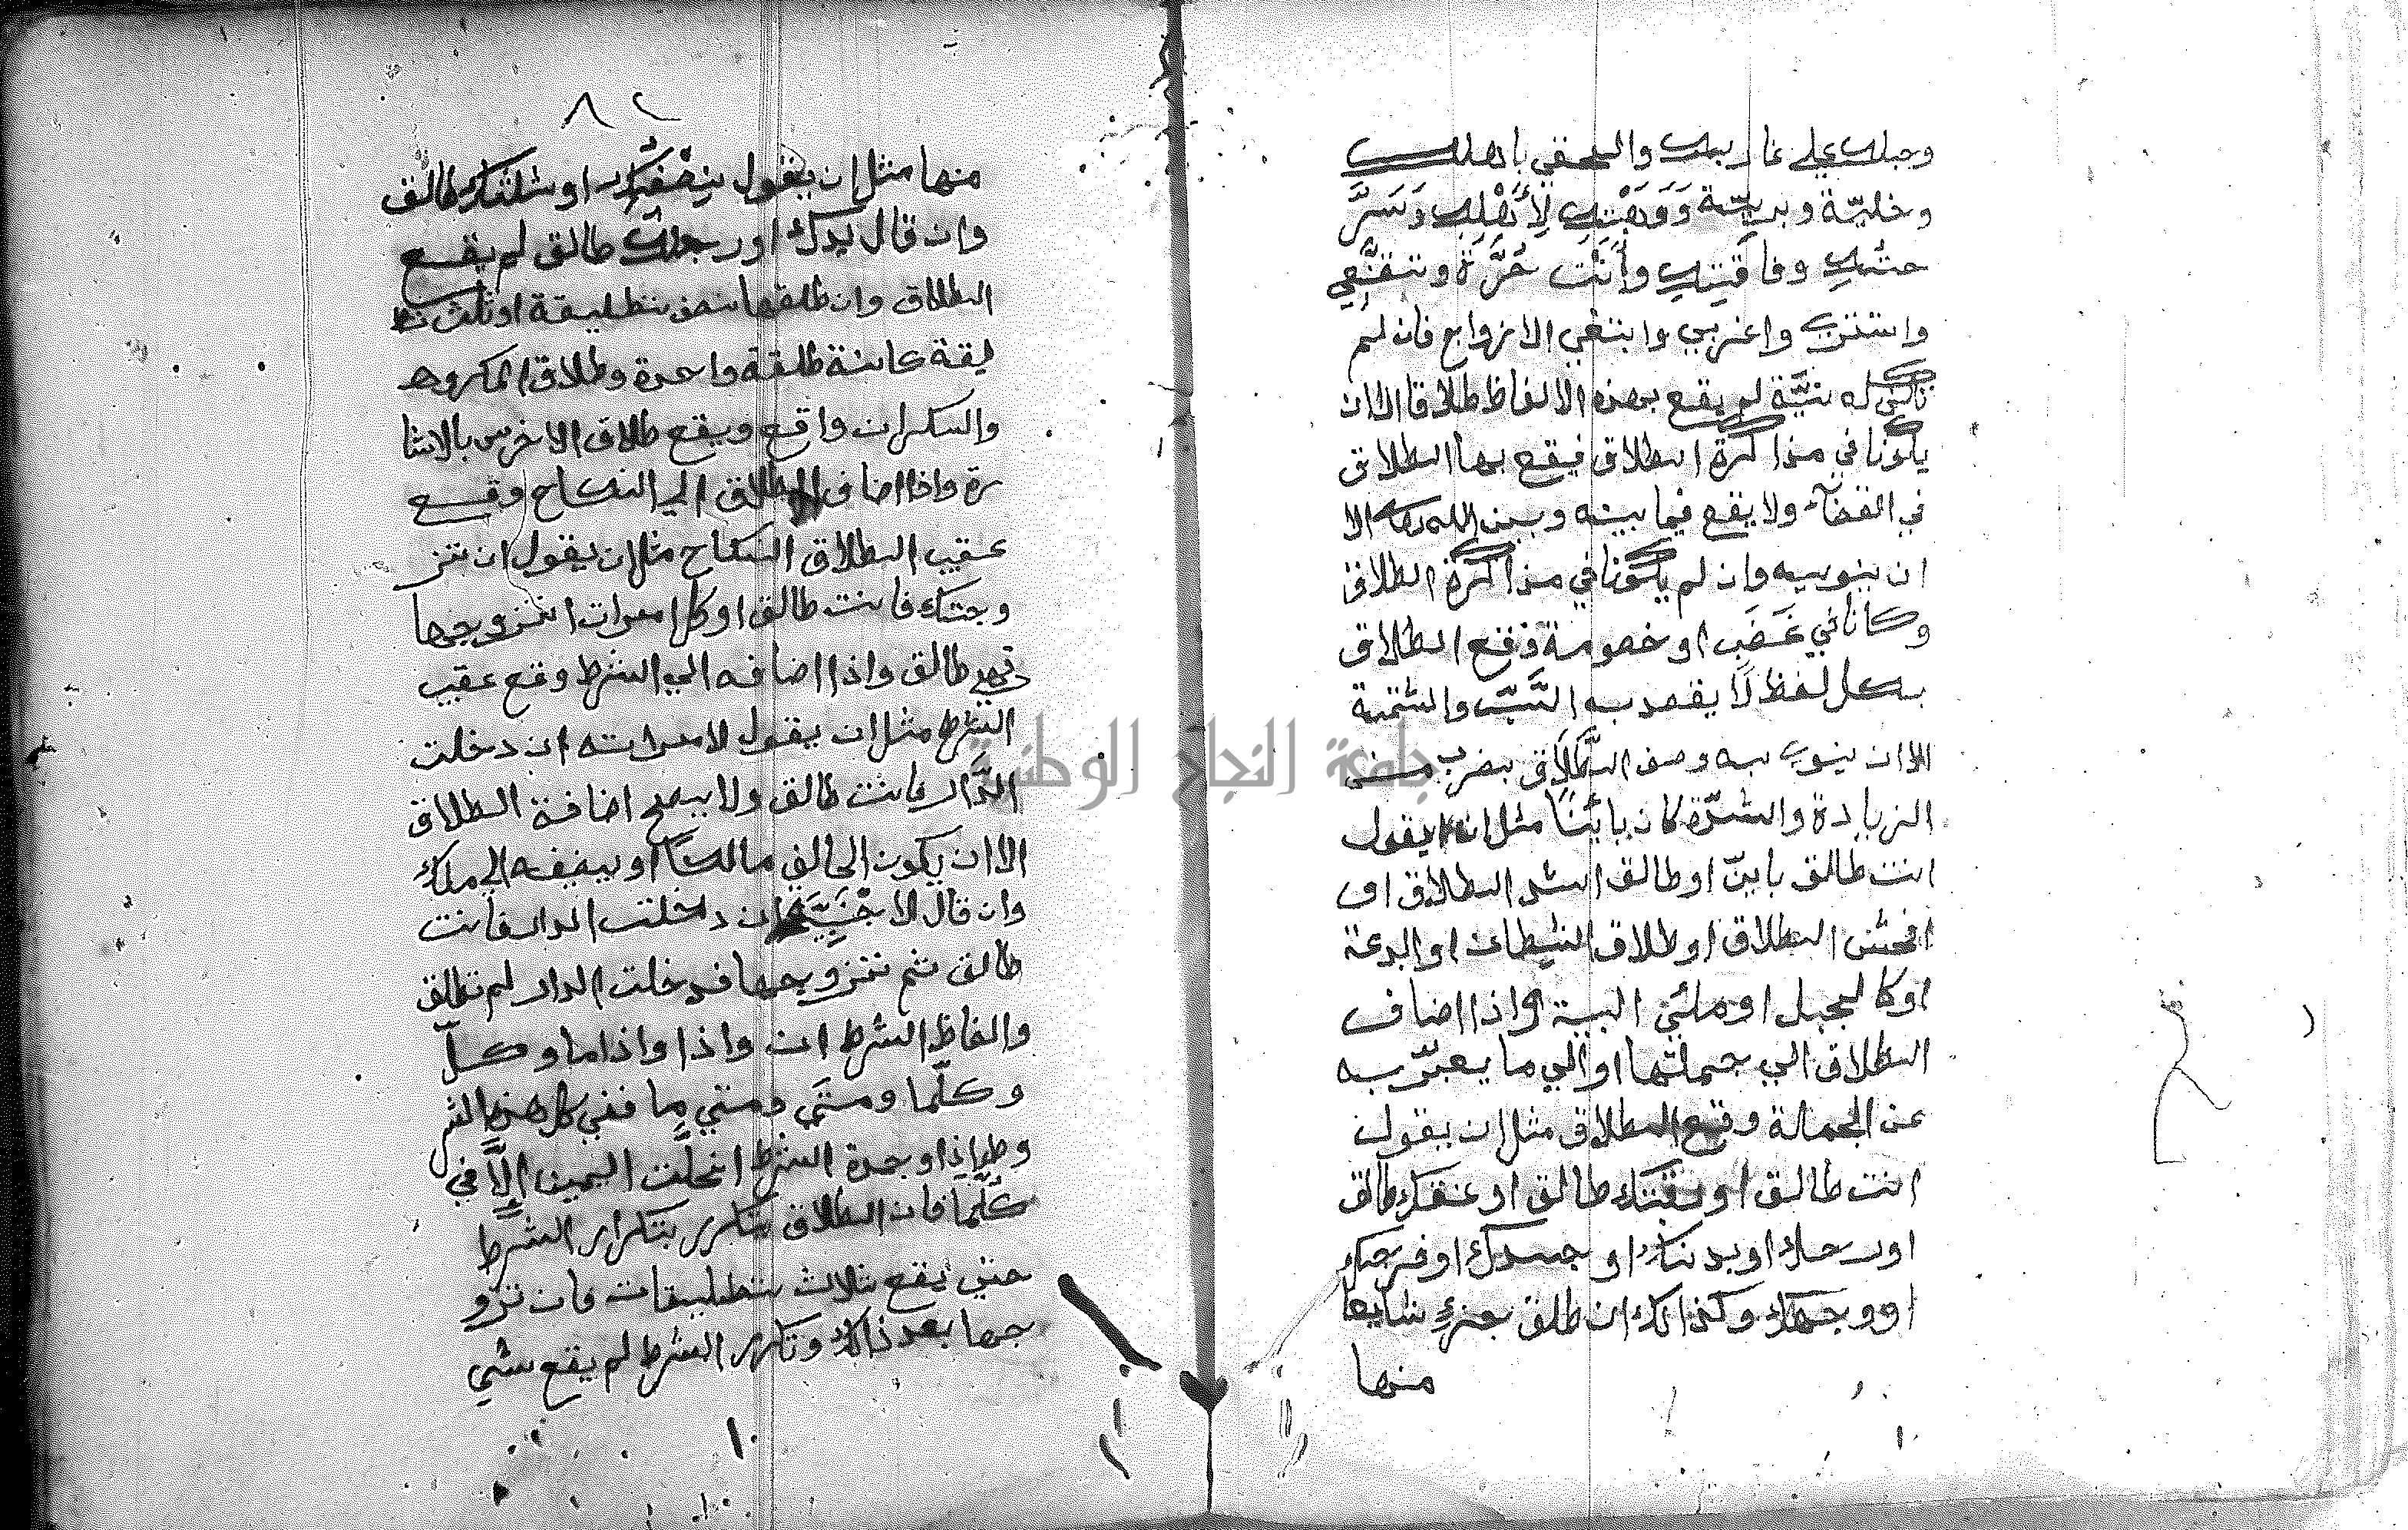 وحبلك علي غاربك والحقي باهلك
وخليّة وبريّة وَوَهَبْتِك لِأَهْلِك وَسَرَّ
حتُك وفاقتِك وأَنْت حُرَّة وتقنَّعي
واستتري واغربي وابتغي الازواج فان لم
تكن له نيَّة لم يقع بهذه الالفاظ طلاقا الا ان
يكونا في مذاكرة الطلاق فيقع بها الطلاق
في القضآء ولا يقع فيما بينه وبين الله تعالى الا
ان ينويه وان لم يكونا في مذاكرة الطلاق
وكانا في غَضَبٍ او خصومة وقع الطلاق
بكل لفظ لَا يقصد به السَّبّ والشتمة
الا ان ينوي به وصف الطَّلَاق بضرب من
الزيادة والشدّة كان بائنًا مثل ان يقول
انت طالق باينّ او طالق اشد الطلاق او
افحش الطلاق او طلاق الشيطان او البدعة
او كالجبل او ملئي البية واذا اضاف
الطلاق الي جملتها او الي ما يعبّر به
عن الجمالة وقع الطلاق مثل ان يقول
انت طالق او رقبتك طالق او عنقك طالق
او رحك او بدنك او جسدك او فرجك
او وجهك وكذالك ان طلق جزءٍ شايعا
منها
٨٢
منها مثل ان يقول نِصْفُكِ او ثلثك طالق
وان قال يدك او رجلك طالق لم يقع
الطلاق وان طلقها نصف تطليقة او ثلث تط
ليقة كانة طلقة واحدة وطلاق المكروه
والسكران واقع ويقع طلاق الاخرس بالاشا
رة واذا اضاف الطلاق الي النكاح وقع
عقيب الطلاق النكاح مثل ان يقول ان تز
وجتك فانت طالق او كل امرات اتزوجها
فهي طالق واذا اضافه الي الشرط وقع عقيب
الشرط مثل ان يقول لامراته ان دخلت
الدَّار فانت طالق ولا يصح اضافة الطلاق
الا ان يكون الحالف مالكًا او يضيفه الي ملك
وان قال لاجْنَبِيَّة ان دخلت الدار فانت
طالق ثم تزوجها فدخلت الدار لم تطلق
والفاظ الشرط ان واذا واذاما وكلّ
وكلّما ومتَي ومتي ما ففي كل هذه الشر
وط اذا وجدة الشرط انحلَّت اليمين إلَّا في
كلَّما فان الطلاق يتكرر بتكرار الشرط
حتي يقع ثلاث تطليقات فان تزو
جها بعد ذالك وتكرر الشرط لم يقع شي
جامعة النجاح الوطنية